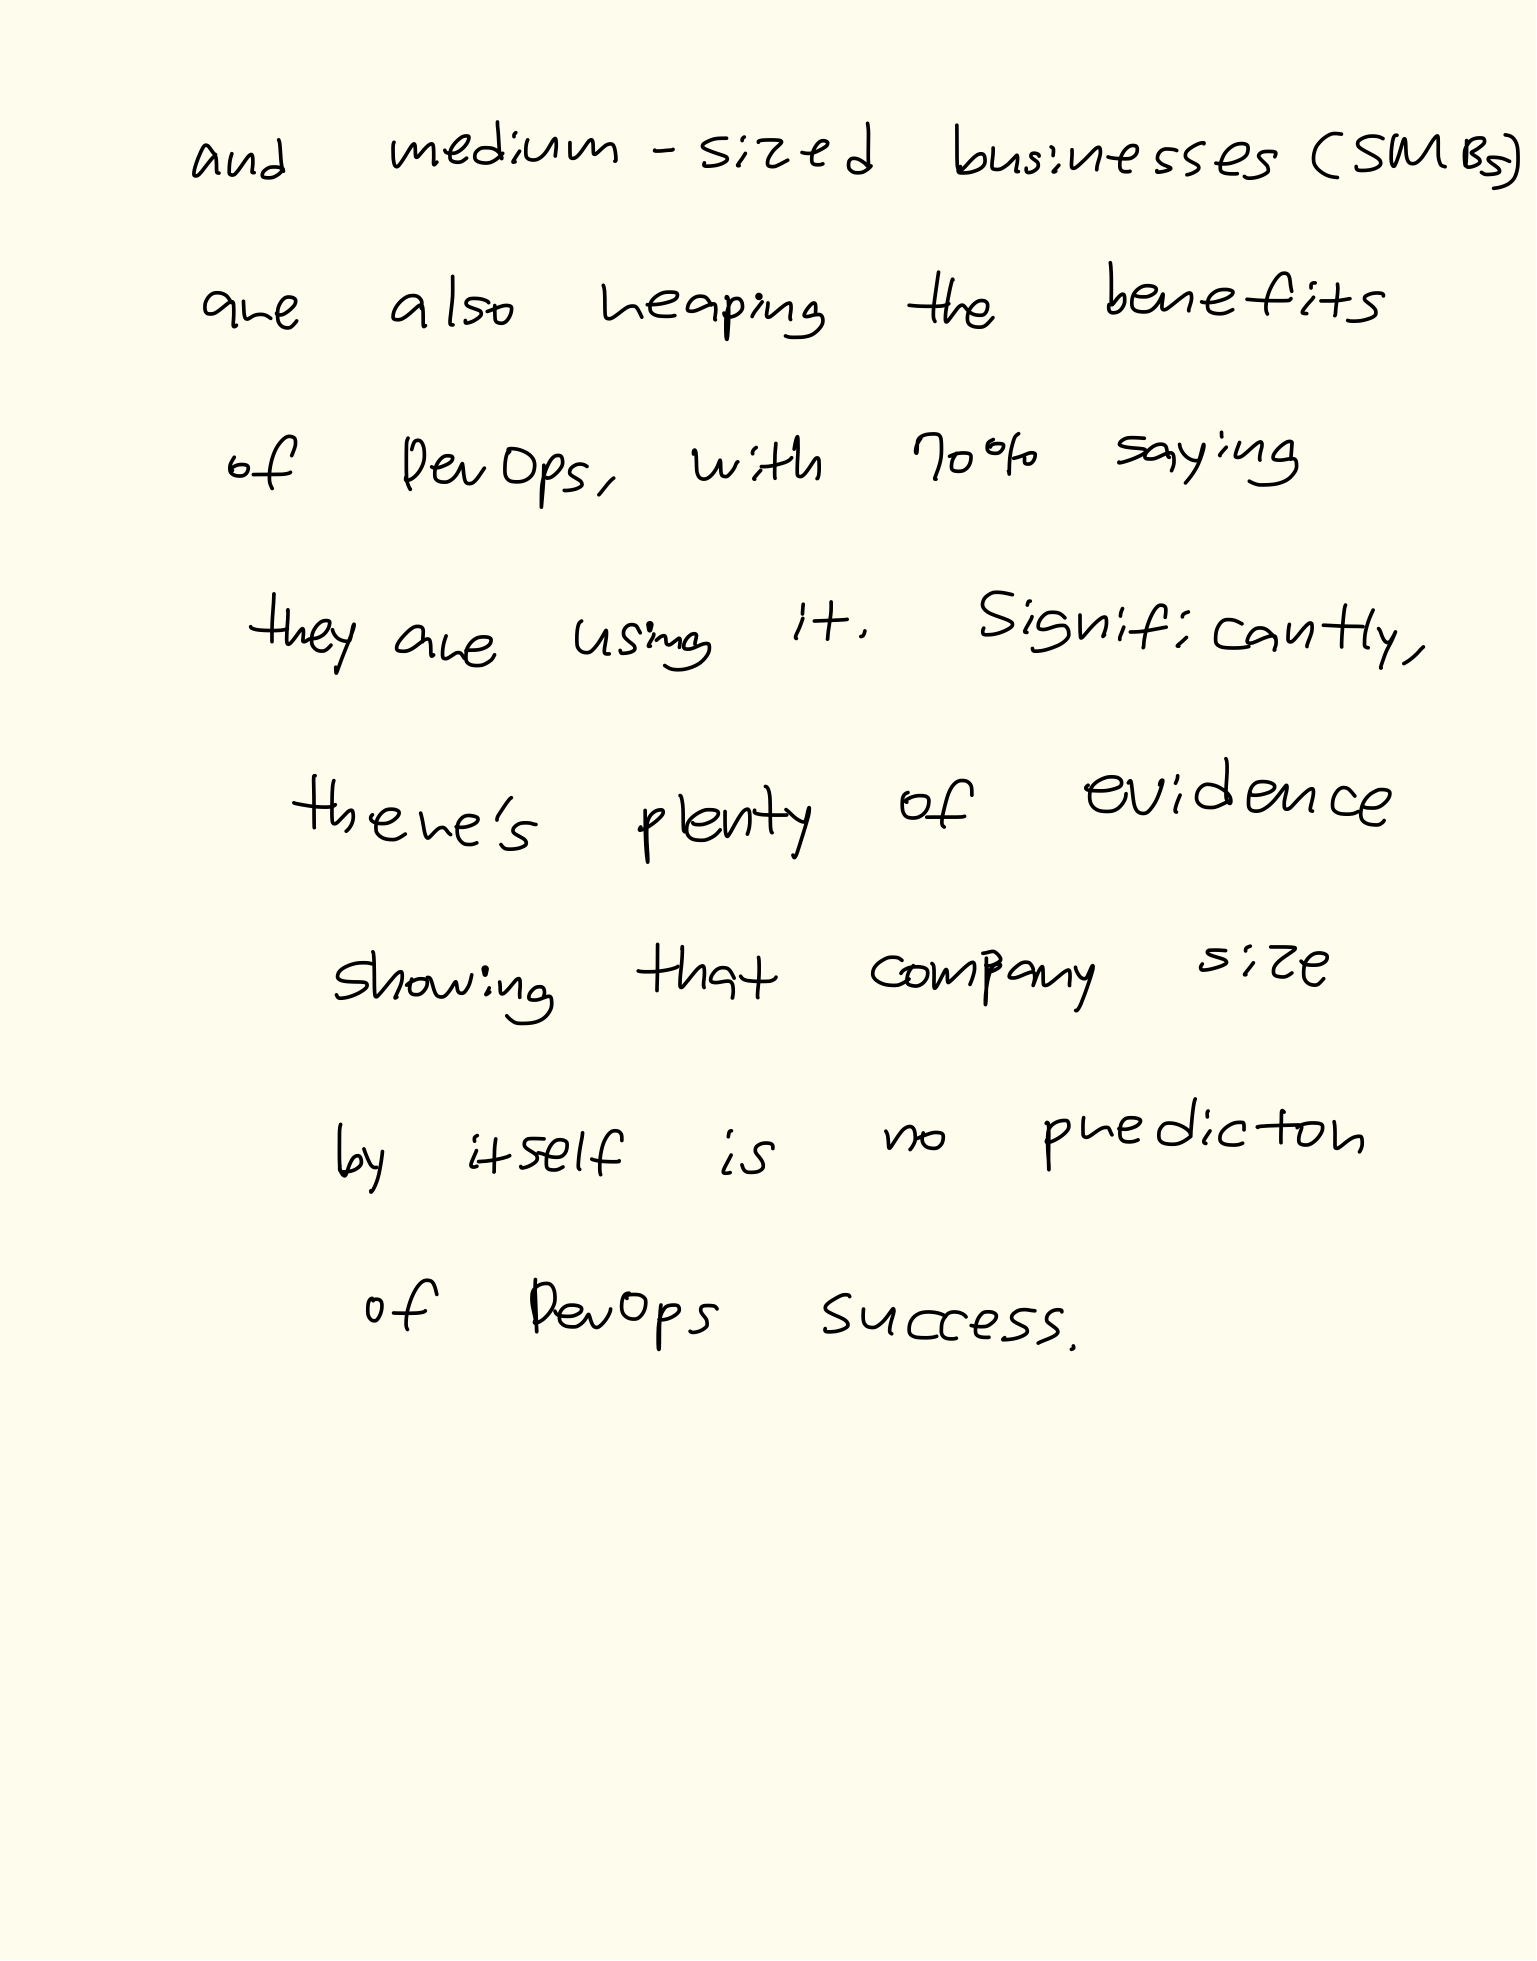 and medium-sized businesses (SMBs)
are also reaping the benefits
of DevOps, with 70% saying
they are using it. Significantly,
there's plenty of evidence
showing that company size
by itself is no predictor
of DevOps success.